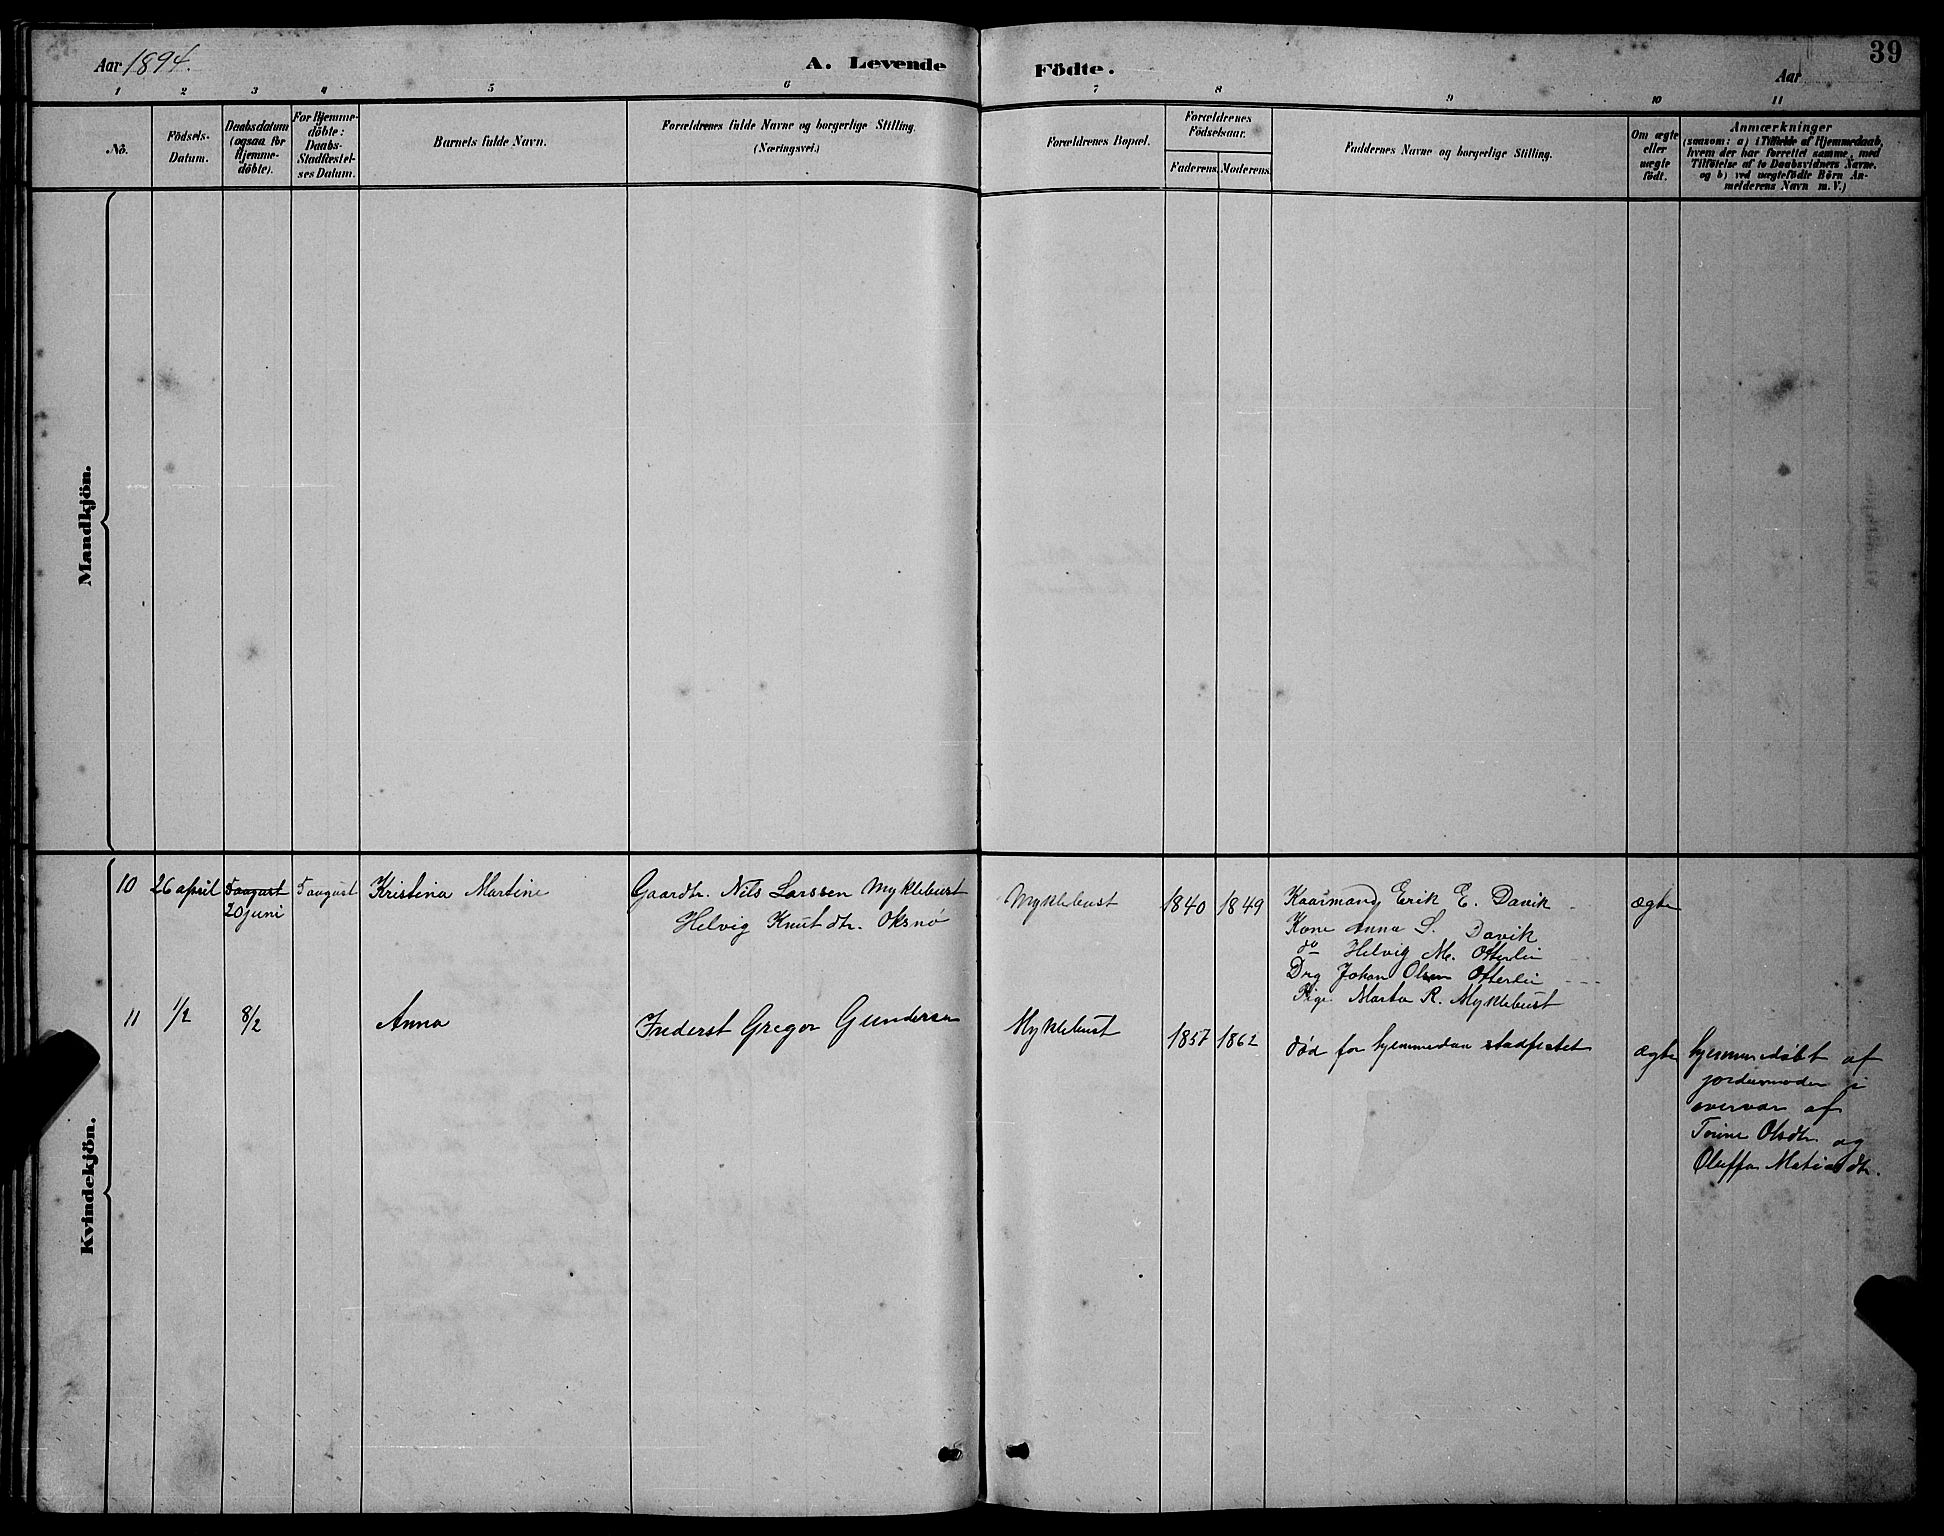 39
Aar 1894.
A. Levende Födte.
Aar
1 2 3 4 5 6 7 8 9 10 11
No.
Födsels-
Datum.
Daabsdatum
(ogsaa for
Hjemme-
döbte).
For Hjemme-
döbte:
Daabs-
Stadfæstel-
ses Datum.
Barnets fulde Navn.
Forældrenes fulde Navne og borgerlige Stilling.
(Næringsvei.)
Forældrenes Bopæl.
Forældrenes
Födselsaar.
Faderens. Moderens.
Faddernes Navne og borgerlige Stilling.
Om ægte
eller
uægte
födt.
Anmærkninger
(saasom: a) i Tilfælde af Hjemmedaab,
hvem der har forrettet samme, med
Tilföielse af to Daabsvidners Navne.
og b) ved uægtefödte Börn An-
melderens Navn m. V.)
Mandkjön.
Kvindekjön.
10
26 april
5 august
20 juni
5 august
Kristina Martine
Gaardbr. Nils Larssen Myklebust
Helvig Knutdtr. Oksnø
Myklebust
1840
1849
Kaarmand Erik E. Davik
Kone Anna S. Davik
do Helvig M. Otterlei
Drg Johan Olsen Otterlei
Pige Marta R. Myklebust
ægte
11
1/2
8/2
Anna
Inderst Gregor Gundersen
Myklebust
1857
1862
død før hjemmedaa stadfestet
ægte
hjemmedøbt af
jordermoder i
overvær af
Torine Olsdtr og
Oluffa Matiasdtr.